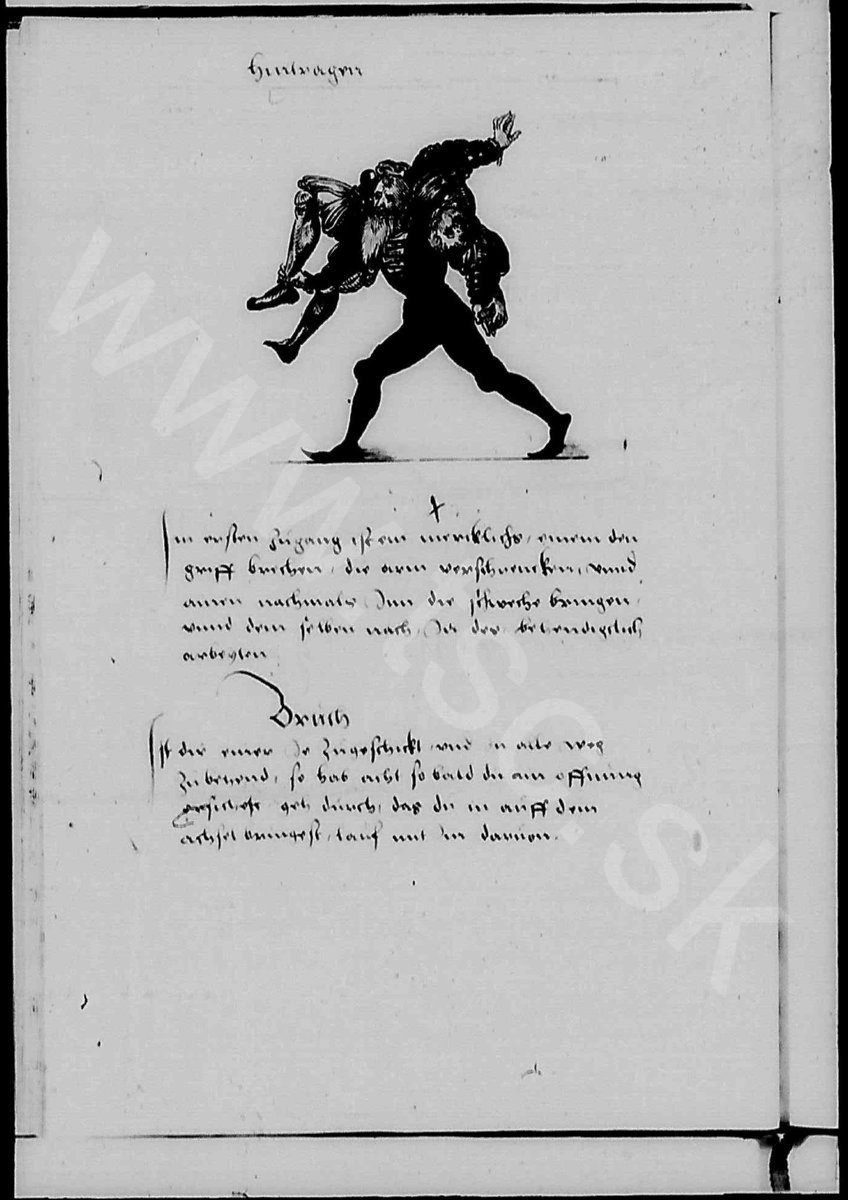 Hintragen
Im ersten zugang ist ein mercklichs, einem den
griff brechen, die arm verschrencken, vnnd
ainen nachmals Inn die schweche bringen,
vnnd dem selben nach, In der behendigclich
arbeyten
Bruch
Ist dir einer Je zugeschickt vnd in alle weg
zu behend, so hab acht so bald du ain offnung
ersichest geh durch, das du in auff dem
achsel bringest, lauf mit Im daruon.
www.hsc.sk